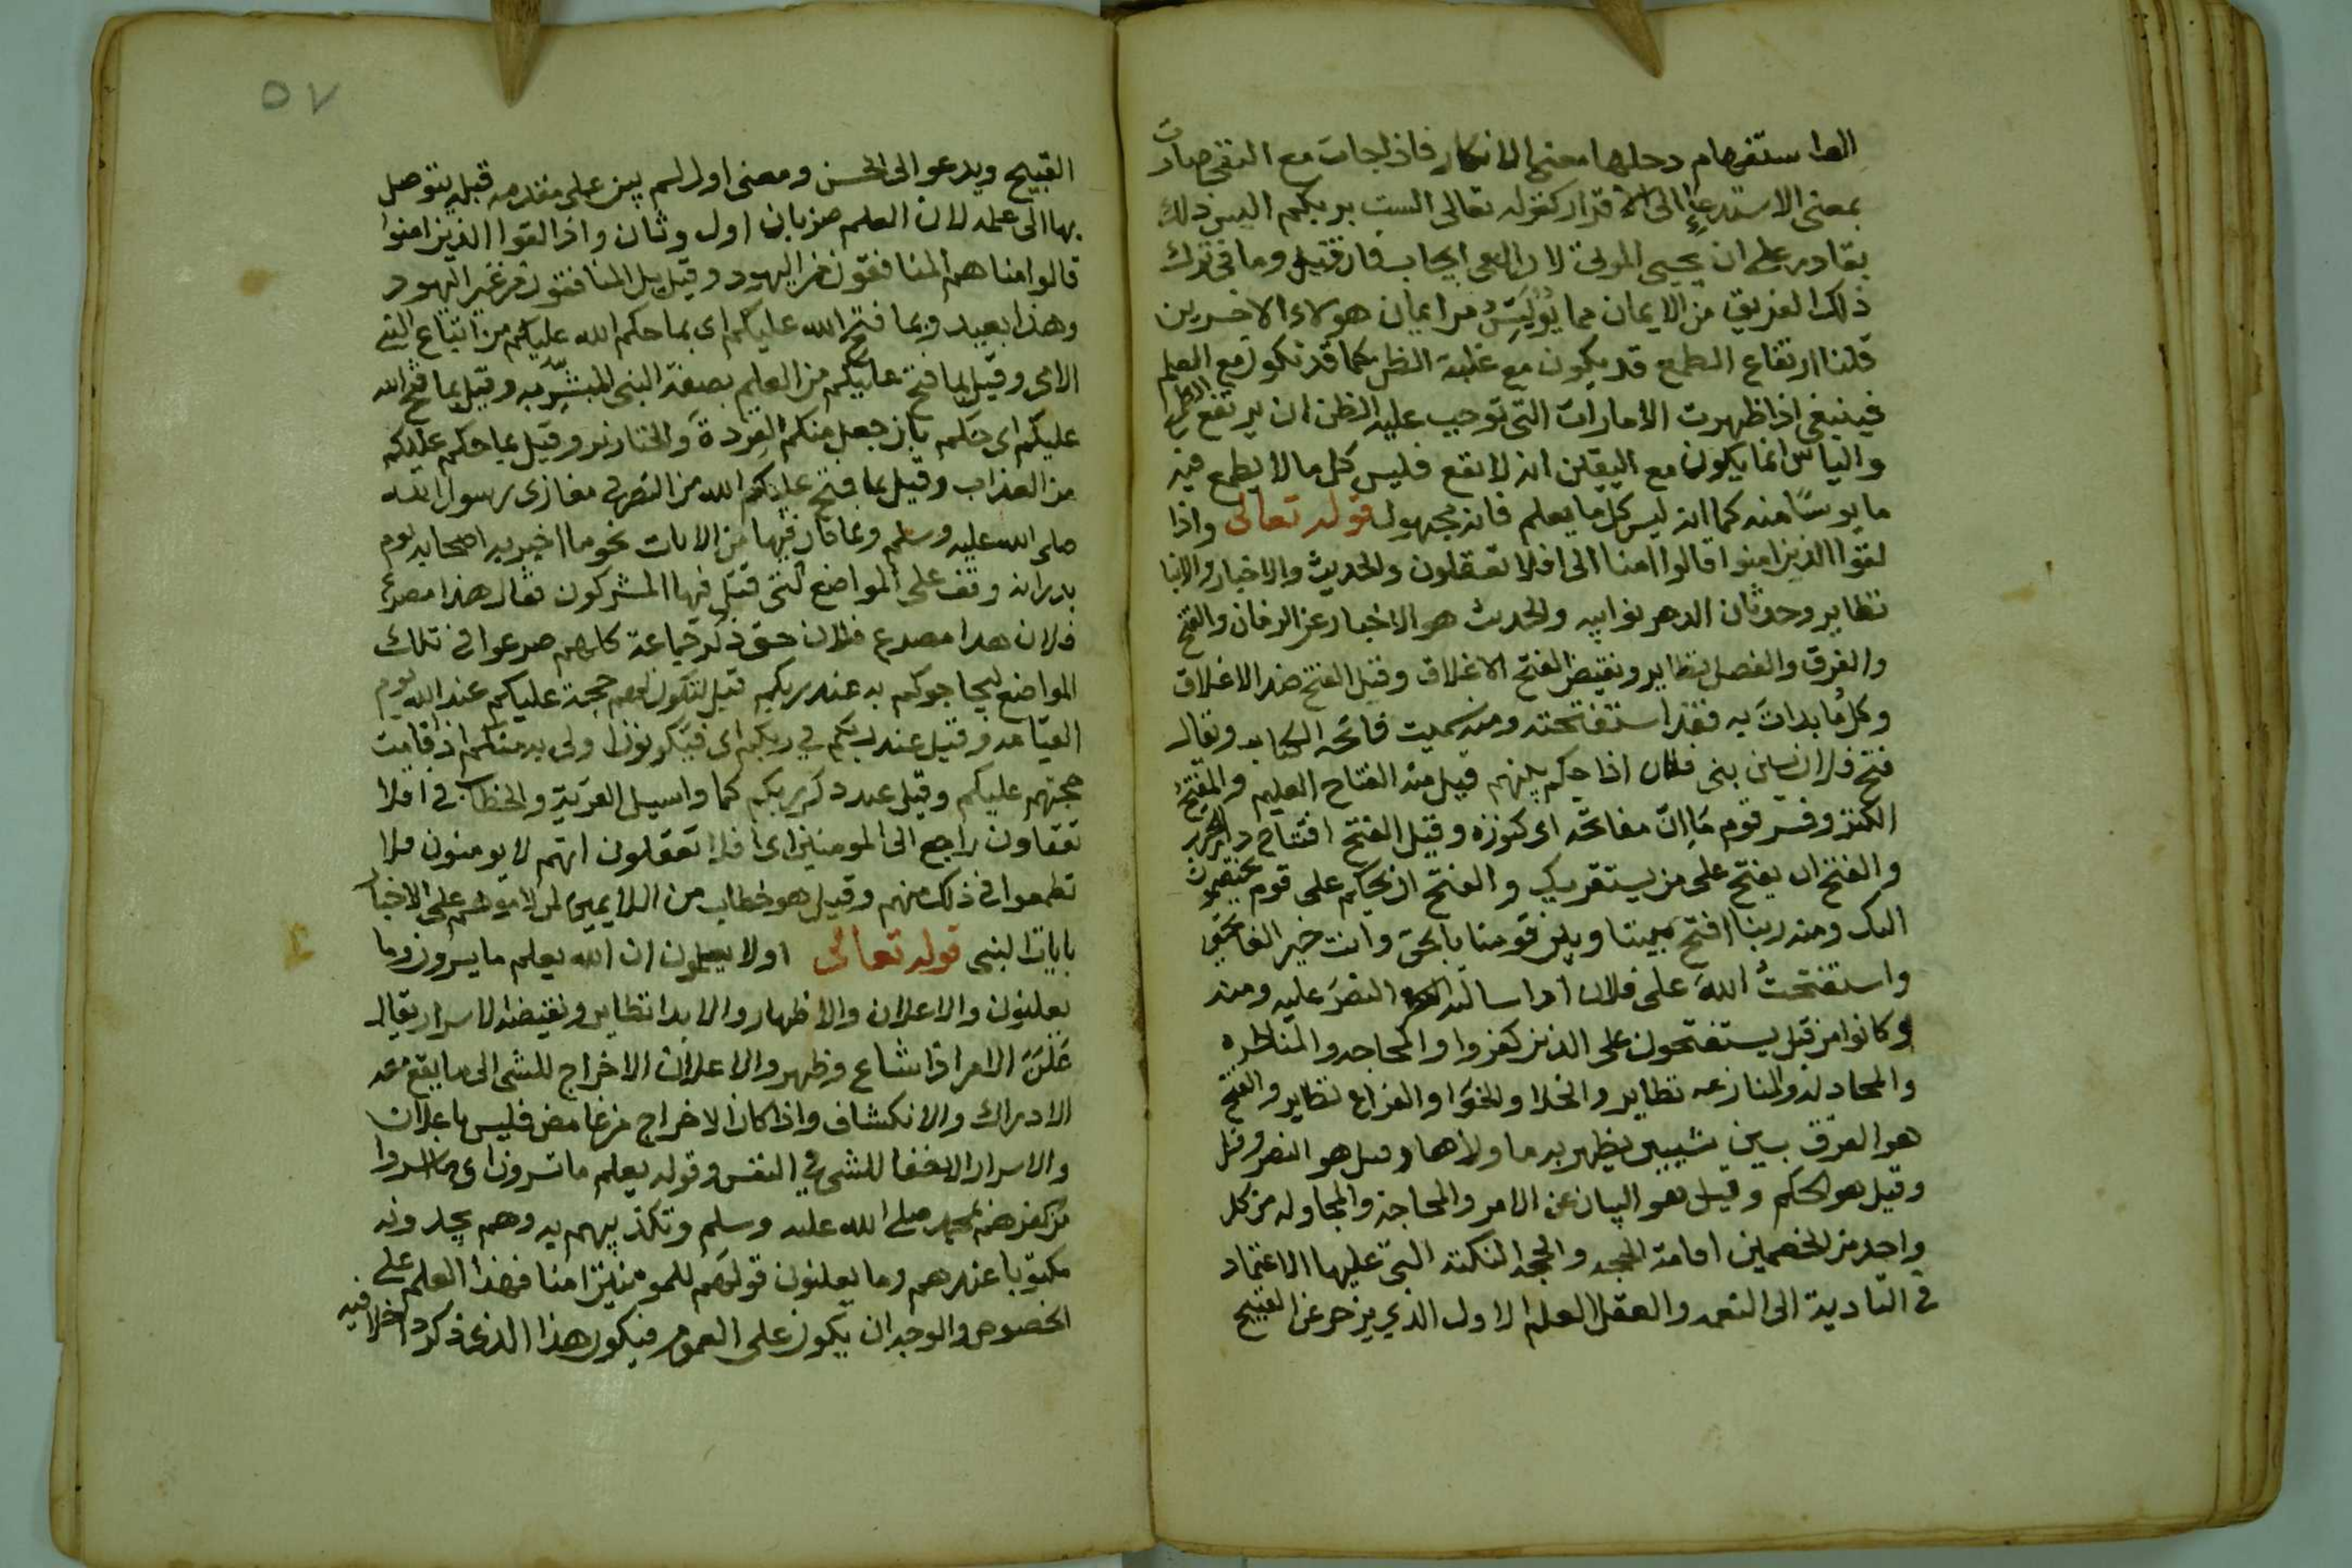 الف استفهام دخلها معنى الانكار فاذا جات مع النفى صارت
بمعنى الاستدعاء الى الاقرار كقوله تعالى الست بربكم اليس ذلك
بقادر على ان يحيى الموتى لان ايجاب فان قيل وما فى ترك
ذلك الفريق من الايمان مما يُويِسُ من ايمان هولاء الاخرين
قلنا ارتفاع الطمع قد يكون مع غلبة الظن كما قد تكون مع العلم
فينبغى اذا ظهرت الامارات التى توجب عليه الظن ان يرتفع الطمع
والياس انما يكون مع اليقين انه لا يقع فليس كل ما لا يطمع فيه
مايوسًا منه كما انه ليس كل ما يعلم فانه مجهول قوله تعالى واذا
لقوا الذين امنوا قالوا امنا الى افلا تعقلون والحديث والاخبار والانبا
نظاير وحدثان الدهر نوايبه والحديث هو الاخبار عن الزمان والفتح
والفرق والفصل نظاير ونقيض الفتح الاغلاق وقيل الفتح ضد الاغلاق
وكل ما بدات به فقد استفتحته ومنه سميت فاتحه الكتاب ويقال
فتح فلان بين بنى فلان اذا حكم بينهم قيل منه الفتاح العليم والمفتح
الكنز وفسر قوم ما ان مفاتحه اى كنوزه وقيل الفتح افتتاح دار الحرب
والفتح ان يفتح على من يستقريك والفتح ان يحكم على قوم يختصمون
اليك ومنه ربنا افتح بيننا وبين قومنا بالحق وانت خير الفاتحين
واستفتحتُ اللهَ على فلان اى سالته النصرَ عليه ومنه
وكانوا من قبل يستفتحون على الذين كفروا والمحاجه والمناظره
والمجادله والمنازعه نظاير والخلا والخوا والفراغ نظاير والفتح
هو الفرق بين شييين يظهر به ما وراها وقيل هو النصر وقيل
وقيل هو الحكم وقيل هو البيان عن الامر والمحاجة والمجاوله من كل
واحد من الخصمين اقامة الحجه والحجه النكته التى عليها الاعتماد
فى التادية الى والعقل العلم الاول الذى يزجر عن القبيح
٥٧
القبيح ويدعو الى الحسن ومعنى اول لم يبن على مقدمه قبله يتوصل
بها الى علمه لان العلم ضربان اول وثان واذا لقوا الذين امنوا
قالوا امنا هم المنافقون من اليهود وقيل بل المنافقون من غير اليهود
وهذا بعيد وبما فتح الله عليكم اى بما حكم الله عليكم من اتباع النبى
الامى وقيل بما فتح عليكم من العلم بصفة النبى المبشَّر به وقيل بما فتح الله
عليكم اى حكم بان جعل منكم القِردةَ والخنازير وقيل بما حكم عليكم
من العذاب وقيل بما فتح عليكم الله من النصر فى مغازى رسول الله
صلى الله عليه وسلم وبما كان فيها من الايات نحو ما اخبر به اصحابه يوم
بدر انه وقف على المواضع التى قتل فيها المشركون فقال هذا مصرع
فلان هذا مصرع فلان حتى ذكر جماعة كلهم صرعوا فى تلك
المواضع ليحاجوكم به عند ربكم قيل لتكون لهم حجة عليكم عند الله يوم
القيامه وقيل عند ربكم فى ربكم اى فيكونون اولى به منكم اذا قامت
حجتهم عليكم وقيل عند ذكر ربكم كما واسيل القرية والخطاب فى افلا
تعقلون راجع الى المومنين اى افلا تعقلون انهم لا يومنون فلا
تطمعوا فى ذلك منهم وقيل هو خطاب من اللايمين لمن لاموهم على الاخبار
بايات النبى قوله تعالى اولا يعلمون ان الله يعلم ما يسرون وما
يعلنون والاعلان والاظهار والابدا نظاير ونقيضه الاسرار يقال
عَلَنَ الامر اذا شاع وظهر والاعلان الاخراج للشى الى ما يقع معه
الادراك والانكشاف واذا كان الاخراج من غامض فليس باعلان
والاسرار الاخفا للشى فى النفس وقوله يعلم ما تسرون اى ما اسروا
من كفرهم بمحمد صلى الله عليه وسلم وتكذيبهم به وهم يجدونه
مكتوبا عندهم وما يعلنون قولهم للمومنين امنا فهذا العلم على
الخصوص والوجه ان يكون على العموم فيكون هذا الذى ذكر داخلا فيه